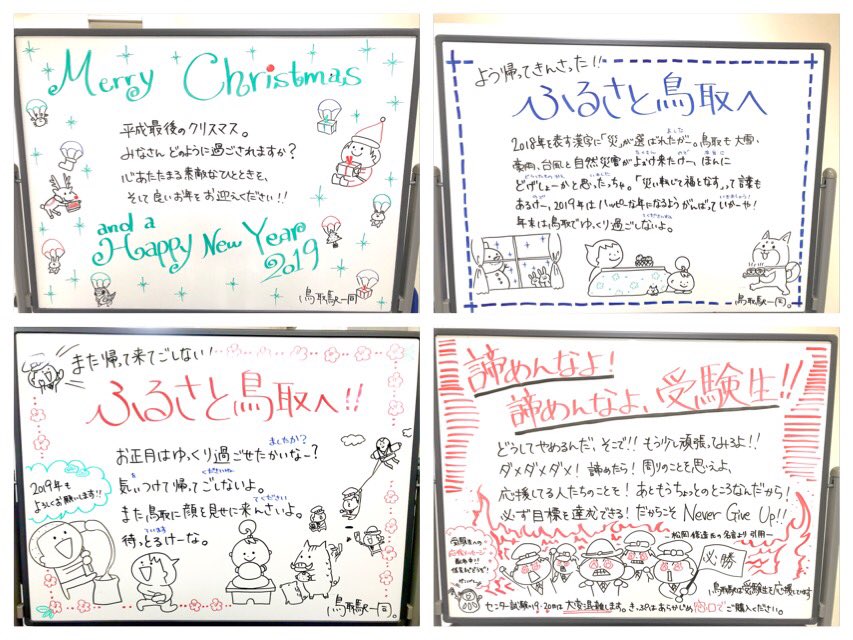 Merry Christmas
平成最後のクリスマス。
みなさん どのように過ごされますか?
心あたたまる素敵なひとときを、
そして 良いお年を お迎えください!!
and a
Happy New Year
2019
鳥取駅一同
よう帰ってきんさった!!
ふるさと鳥取へ
ました
2018年を表す漢字に「災」が選ばれたが。鳥取も大雪、
たくさん ので 本当に
豪雨、台風と自然災害がよけ来たけー、ほんに
どうしたものかと いました
どげしょーかと思ったっちゃ。「災い転じて福となす。」って言葉も
ので いきましょう!
あるけー、2019年はハッピーな年になるようがんばっていかーや!
くださいね
年末は鳥取でゆっくり過ごしないよ。
鳥取駅一同。
また帰って来てごしない!
ふるさと鳥取へ!!
ましたか?
お正月はゆっくり過ごせたかいなー?
を くださいね
気ぃつけて帰ってごしないよ。
てください
また鳥取に顔を見せに来んさいよ。
ています
待っとるけーな。
2019年も
よろしくお願いします!!
鳥取駅一同。
諦めんなよ!
諦めんなよ、受験生!!
どうしてやめるんだ、そこで!! もう少し頑張ってみろよ!!
ダメダメダメ! 諦めたら! 周りのことを思えよ、
応援してる人たちのことを! あともうちょっとのところなんだから!
必ず目標を達成できる! だからこそ Never Give Up!!
-松岡修造氏の名言より引用-
受験生への
応援メッセージ
必勝
鳥取駅は受験生を応援しています
センター試験1/19・20日は大変混雑します。きっぷはあらかじめ窓口でご購入ください。